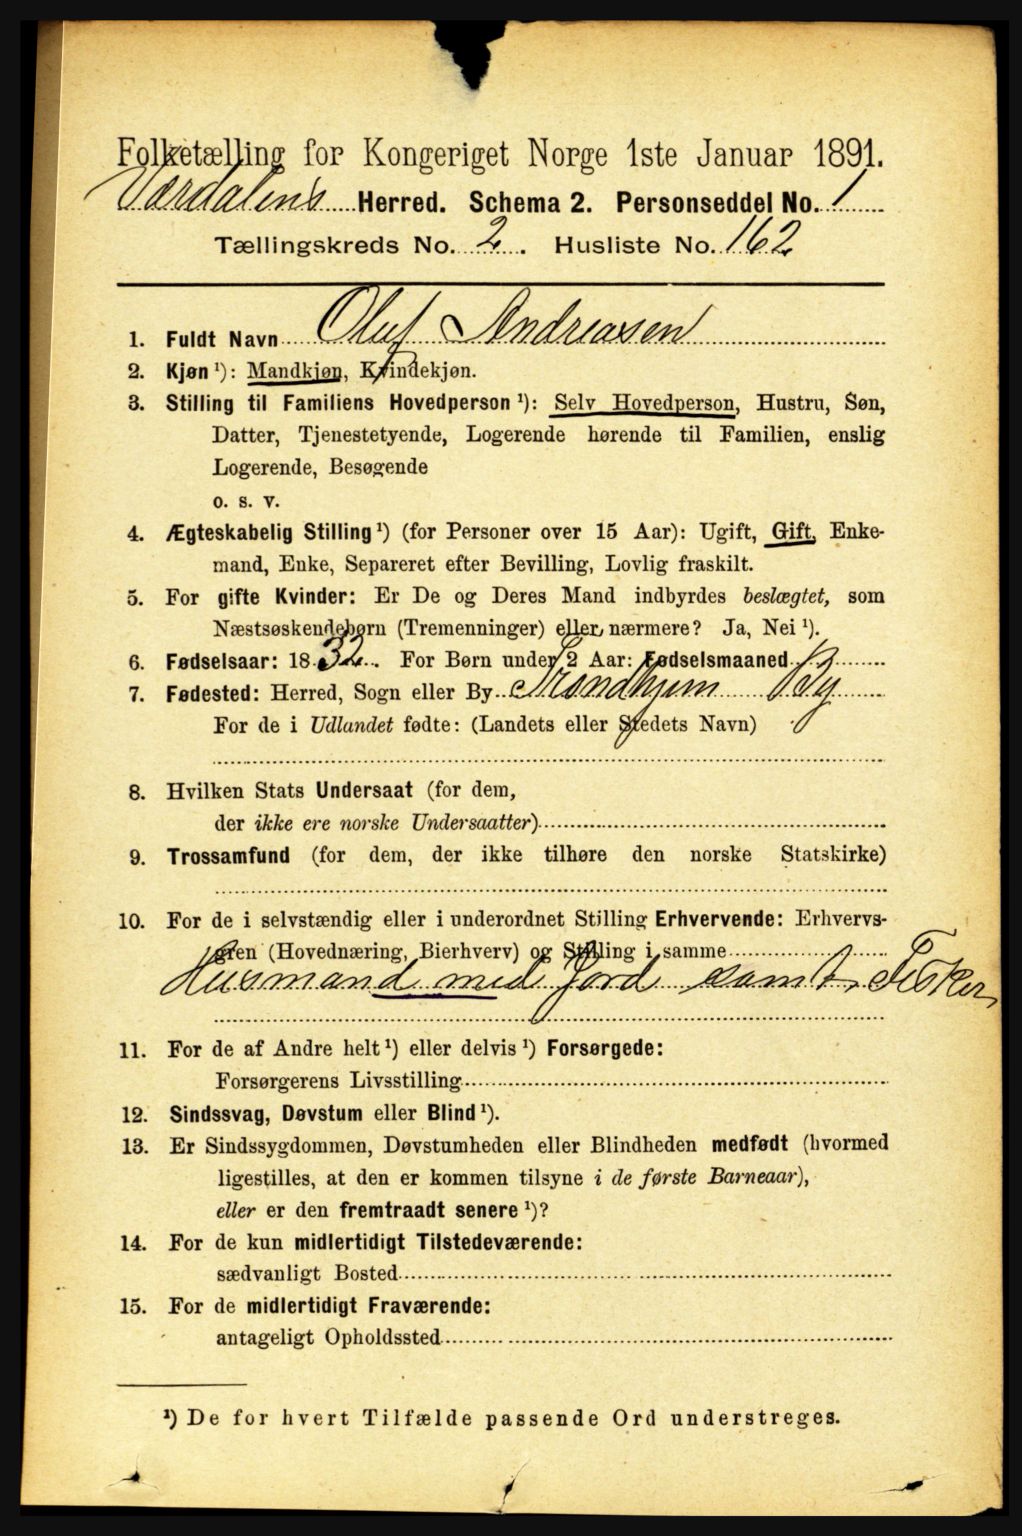 Folketælling for Kongeriget Norge 1ste Januar 1891.
Værdalens Herred. Schema 2. Personseddel No. 1
Tællingskreds No. 2. Husliste No. 162
1. Fuldt Navn Oluf Andreassen
2. Kjøn ¹): Mandkjøn, Kvindekjøn.
3. Stilling til Familiens Hovedperson ¹): Selv Hovedperson, Hustru, Søn,
Datter, Tjenestetyende, Logerende hørende til Familien, enslig
Logerende, Besøgende
o. s. v.
4. Ægteskabelig Stilling ¹) (for Personer over 15 Aar): Ugift, Gift, Enke-
mand, Enke, Separeret efter Bevilling, Lovlig fraskilt.
5. For gifte Kvinder: Er De og Deres Mand indbyrdes beslægtet, som
Næstsøskendebørn (Tremenninger) eller nærmere? Ja, Nei ¹).
6. Fødselsaar: 1832. For Børn under 2 Aar: Fødselsmaaned
7. Fødested: Herred, Sogn eller By Trondhjem By
For de i Udlandet fødte: (Landets eller Stedets Navn)
8. Hvilken Stats Undersaat (for dem,
der ikke ere norske Undersaatter)
9. Trossamfund (for dem, der ikke tilhøre den norske Statskirke)
10. For de i selvstændig eller i underordnet Stilling Erhvervende: Erhvervs-
gren (Hovednæring, Bierhverv) og Stilling i samme
Husmand med Jord samt Fisker
11. For de af Andre helt ¹) eller delvis ¹) Forsørgede:
Forsørgerens Livsstilling
12. Sindssvag, Døvstum eller Blind ¹).
13. Er Sindssygdommen, Døvstumheden eller Blindheden medfødt (hvormed
ligestilles, at den er kommen tilsyne i de første Barneaar),
eller er den fremtraadt senere ¹)?
14. For de kun midlertidigt Tilstedeværende:
sædvanligt Bosted
15. For de midlertidigt Fraværende:
antageligt Opholdssted
¹) De for hvert Tilfælde passende Ord understreges.